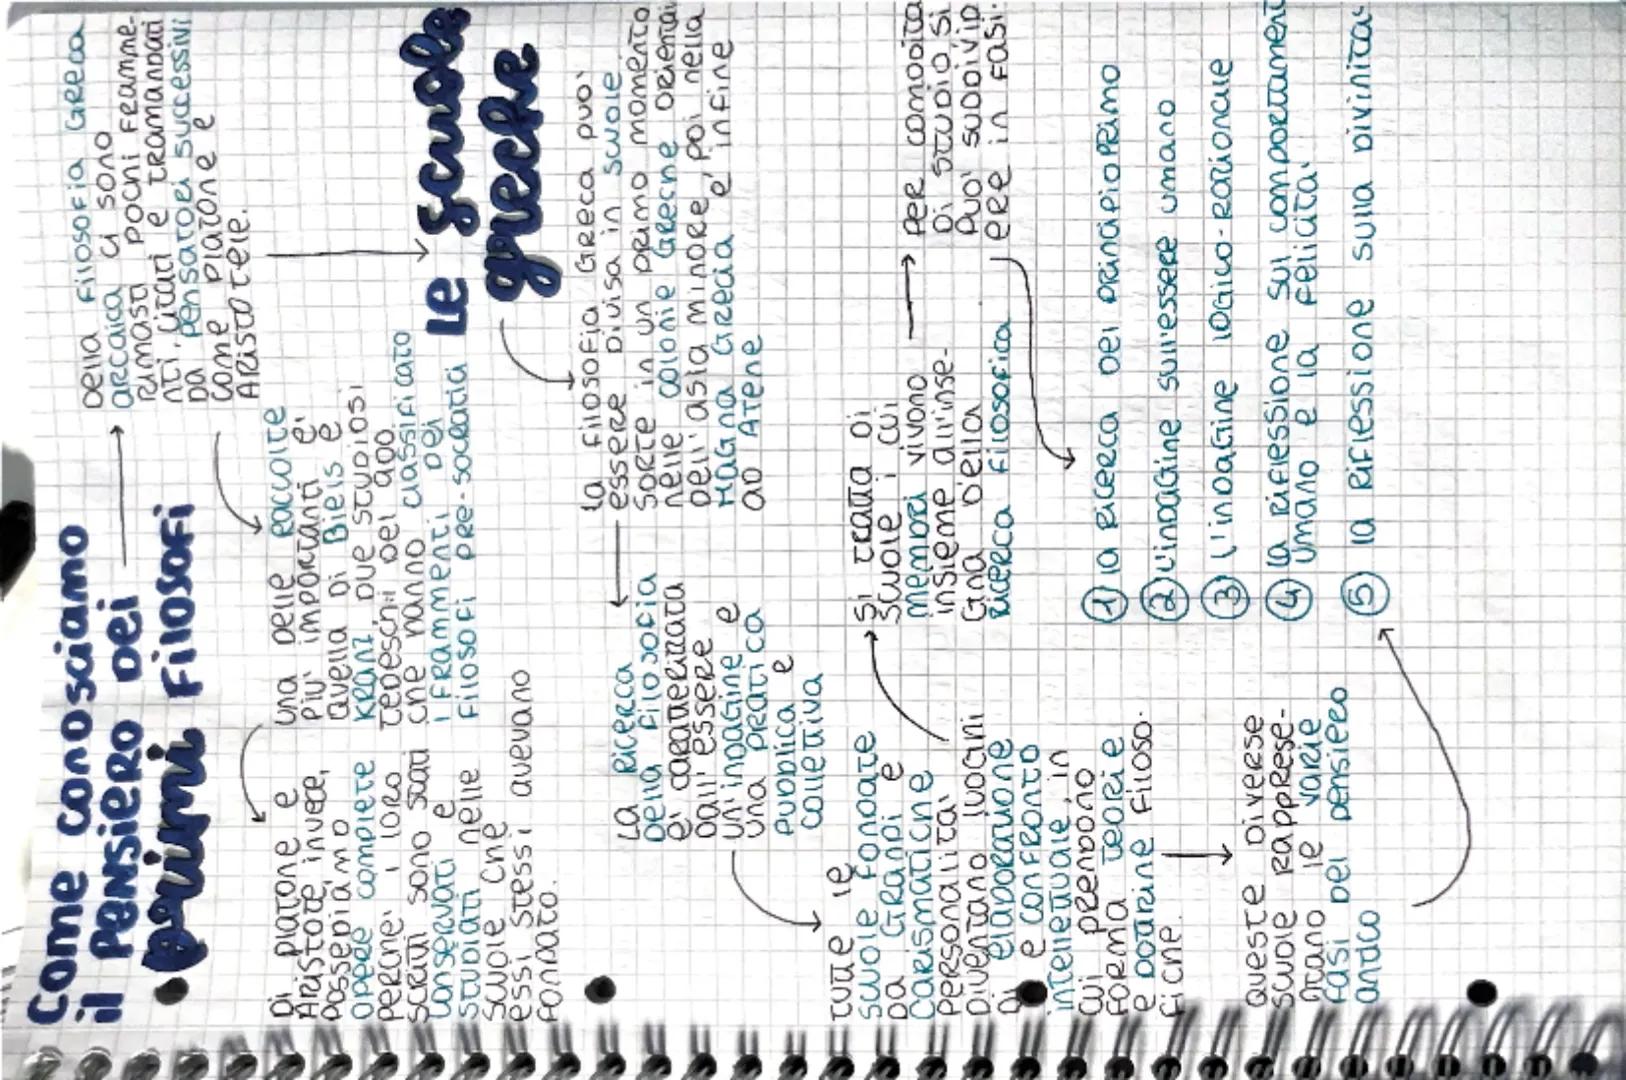 Come conosciamo
il pensiero dei
primi filosofi
Della filosofia Greca
arcaica ci sono
rimasti pochi framme-
nti, citati e tramandati
da pensatori successivi
come Platone e
Aristotele.
Una delle raccolte
più importanti è
quella di Diels e
Kranz due studiosi
tedeschi del 900
che hanno classificato
i frammenti dei
filosofi pre-socratici
Di Platone e
Aristote invece,
possepiamo
opere complete
perché i loro
scritti sono stati
conservati e
studiati nelle
scuole che
essi stessi avevano
fondato.
Le scuole
greche
La filosofia Greca può
essere divisa in scuole
sorte in un primo momento
nelle colonie Greche orientai
dell'asia minore, poi nella
Magna Grecia e infine
ad Atene
La ricerca
della filosofia
è caratterizzata
dall'essere
un'indagine e
una pratica
pubblica e
collettiva
Tutte le
scuole fondate
da Grandi e
carismatiche
personalità
diventano luoghi
di elaborazione
e confronto
intellettuale in
cui prendono
forma teorie
e dottrine filoso-
fiche.
Si tratta di
scuole i cui
membri vivono
insieme all'inse-
gna della
ricerca filosofica.
Per comodità
di studio si
può suddivid
ere in fasi.
Queste diverse
scuole rapprese-
ntano le varie
fasi del pensiero
antico
① la ricerca del principio primo
② l'indagine sull'essere umano
③ l'indagine logico-razionale
④ la riflessione sui comportamenti
umano e la felicità
⑤ la riflessione sulla divinità